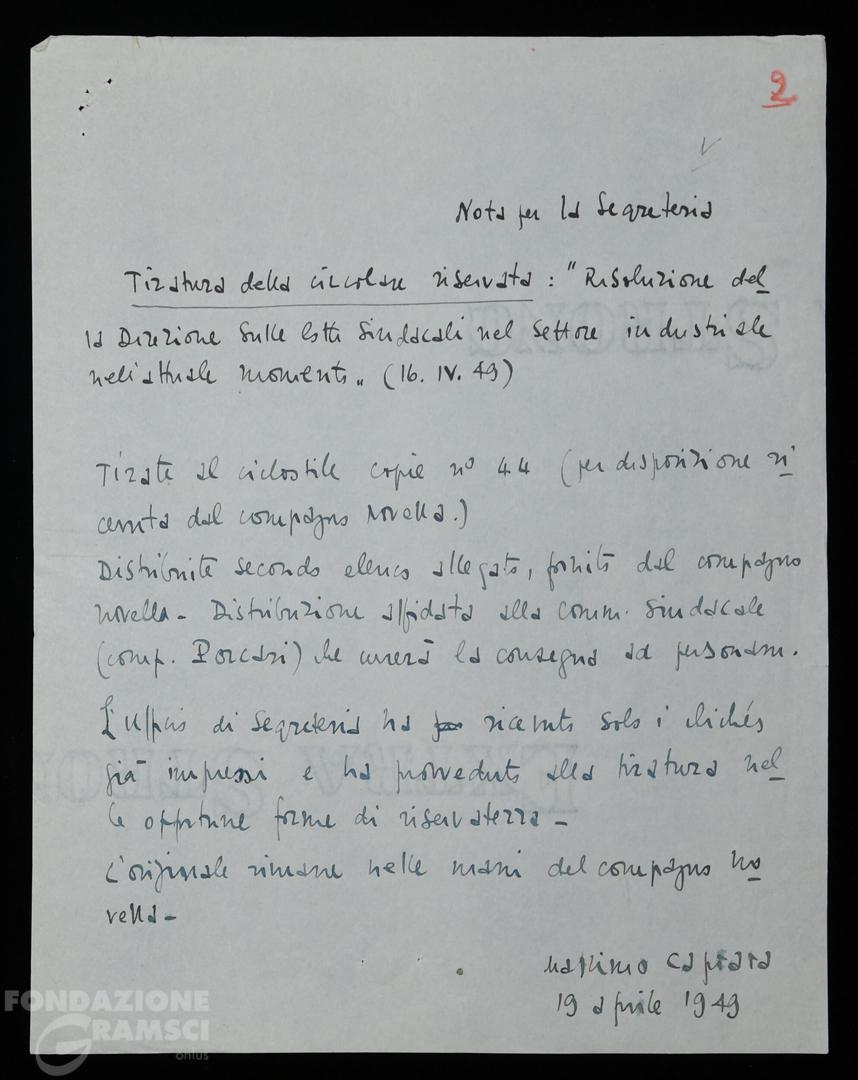 2
Nota per la Segreteria
Tiratura della circolare riservata : "Risoluzione del
la Direzione sulle lotte sindacali nel settore industriale
nell'attuale momento" (16. IV. 49)
Tirate al ciclostile copie n° 44 (per disposizione ri
cevuta dal compagno Novella.)
Distribuite secondo elenco allegato, fornito dal compagno
Novella - Distribuzione affidata alla Comm. Sindacale
(comp. Porcari) che curerà la consegna ad personam.
L'Ufficio di Segreteria ha ricevuto solo i clichés
già impressi e ha provveduto alla tiratura nel
le opportune forme di riservatezza -
L'originale rimane nelle mani del compagno No
vella -
Massimo Caprara
19 aprile 1949
FONDAZIONE
GRAMSCI
onlus